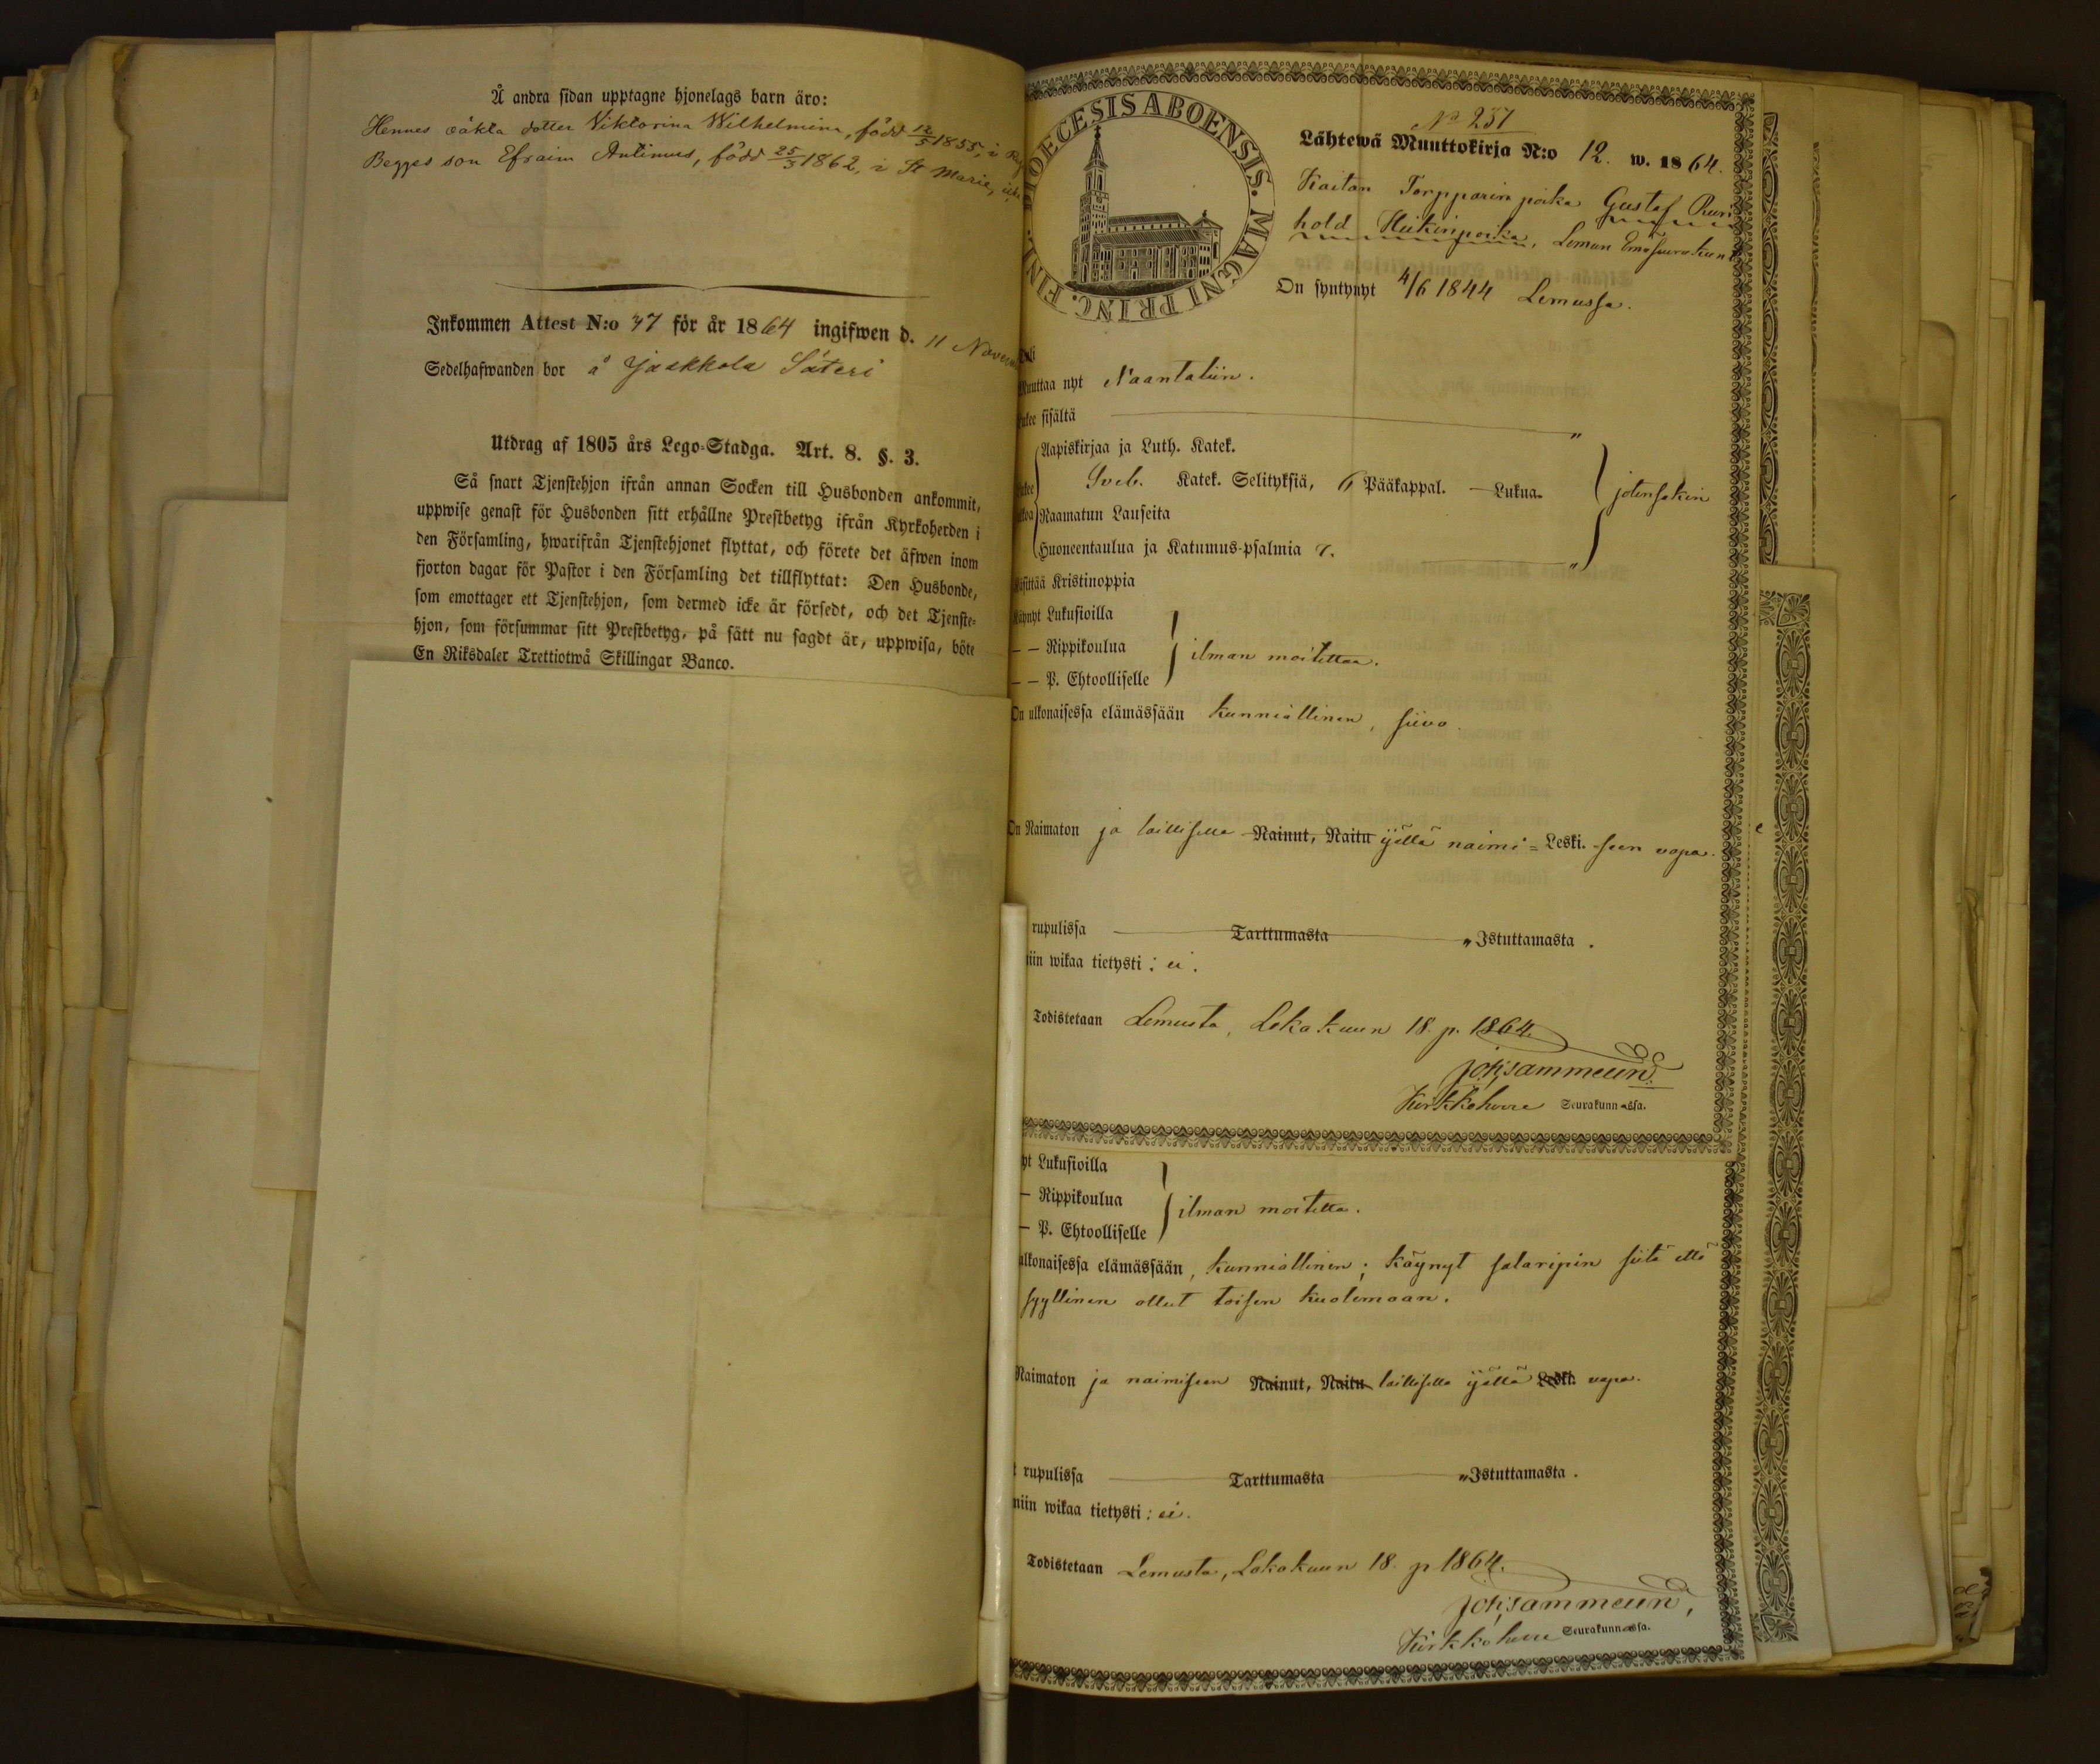 Å andra sidan upptagne hjonelags barn äro:
Hennes oäkta dotter Viktorina Wilhelmina, född 12/5 1855, i
Begges son Efraim Antimus, född 25/3 1862, i St Marie,
Inkommen Attest N:o 47 för år 1864 ingifwen d. 11 Novem
Sedelhafwanden bor å Yjaskkola Säteri
Utdrag af 1805 års Lego-Stadga. Art. 8. §. 3.
Så snart Tjenstehjon ifrån annan Socken till Husbonden ankommit,
uppwise genast för Husbonden sitt erhållne Prestbetyg ifrån Kyrkoherden i
den Församling, hwarifrån Tjenstehjonet flyttat, och förete det äfwen inom
fjorton dagar för Pastor i den Församling det tillflyttat: Den Husbonde,
som emottager ett Tjenstehjon, som dermed icke är försedt, och det Tjenste-
hjon, som försummar sitt Prestbetyg, på sätt nu sagdt är, uppwisa, böte
En Riksdaler Trettiotwå Skillingar Banco.
DIOECESIS ABOENSIS. MAGNI PRINC. FINL
No 237
Lähtewä Muuttokirja N:o 12. w. 1864.
Kaitan Torpparin poika Gustaf Rein
hold Heikinpoika, Lemun Emäseurakun
On syntynyt 4/6 1844 Lemussa.
Tuli
Muuttaa nyt Naantaliin.
Lukee sisältä "
Aapiskirjaa ja Luth. Katek.
Sveb. Katek. Selityksiä, 6 Pääkappal. Lukua. jotensakin
Raamatun Lauseita
Huoneentaulua ja Katumus-psalmia 7.
Käsittää Kristinoppia "
Käynyt Lukusioilla
— — Rippikoulua ilman moitetta.
— — P. Ehtoolliselle
On ulkonaisessa elämässään kunniallinen, siivo.
On Naimaton ja laillisella Nainut, Naitu ijällä naimi= Leski. seen vapa.
rupulissa Tarttumasta " Istuttamasta.
niin wikaa tietysti: ei.
Todistetaan Lemusta, Lokakuun 18. p. 1864.
Joh; Sammelin
Kirkkoherra Seurakunnassa.
yt Lukusioilla
— Rippikoulua ilman moitetta.
— P. Ehtoolliselle
ulkonaisessa elämässään, kunniallinen; käynyt salaripin siitä että
syyllinen ollut toisen kuolemaan.
Naimaton ja naimiseen Nainut, Naitu laillisella ijällä Leski. vapa.
t rupulissa Tarttumasta " Istuttamasta.
niin wikaa tietysti: ei.
Todistetaan Lemusta, Lokakuun 18. p 1864.
Joh; Sammelin,
Kirkkoherra Seurakunnassa.